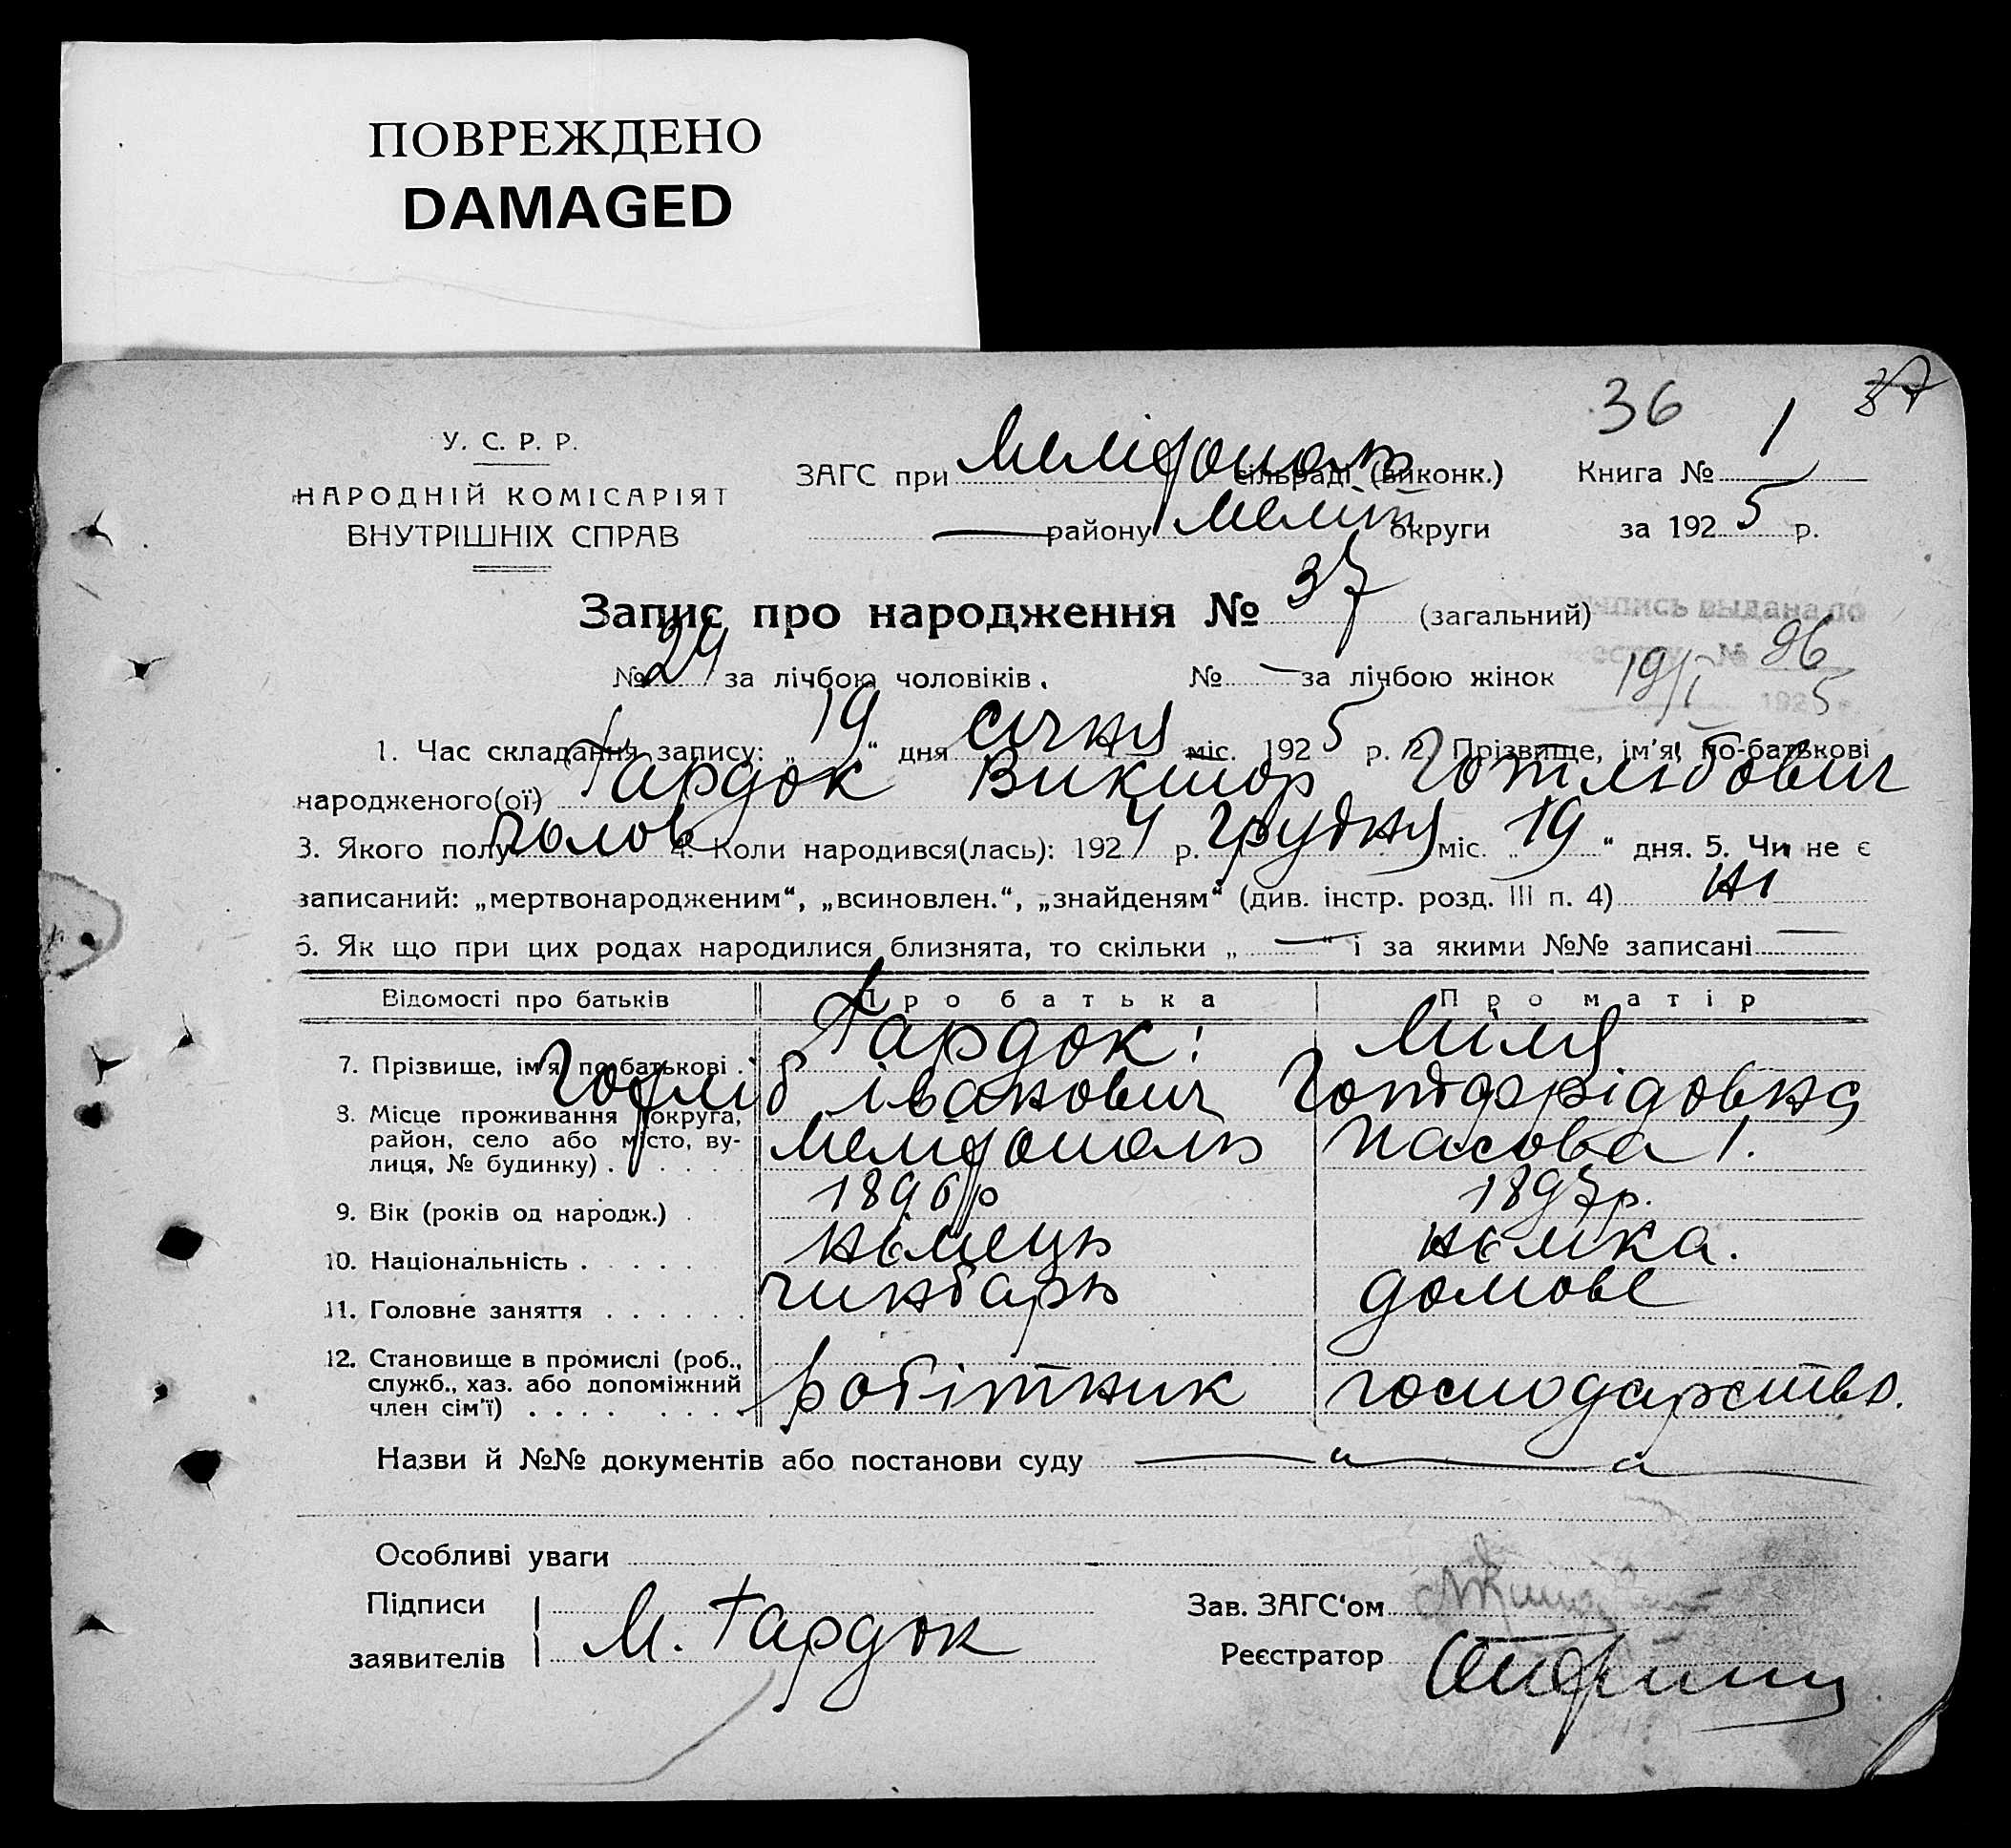 ПОВРЕЖДЕНО
DAMAGED
36 1 37
У. С. Р. Р.
НАРОДНІЙ КОМІСАРІЯТ
ВНУТРІШНІХ СПРАВ
ЗАГС при Мелітополь сільраді (виконк.) Книга № 1
— району Меліт округи за 1925 р.
Запис про народження № 37 (загальний)
выпись выдана по
№ 24 за лічбою чоловіків. № — за лічбою жінок
№ 96
19/I 1925 г.
1. Час складання запису: „19“ дня січня міс. 1925 р. 2. Прізвище, ім'я, по-батькові
народженого(ої) Гардок Виктор Готлібович
3. Якого полу чолов 4. Коли народився(лась): 1924 р. грудня міс. „19“ дня. 5. Чи не є
записаний: „мертвонародженим“, „всиновлен.“, „знайденям“ (див. інстр. розд. III п. 4) ні
6. Як що при цих родах народилися близнята, то скільки „—“ і за якими №№ записані —
Відомості про батьків Про батька Про матір
7. Прізвище, ім'я, по-батькові . Гардок Готліб Іванович Міля Готфрідовна
8. Місце проживання (округа,
район, село або місто, ву-
лиця, № будинку) . . . . Мелітополь Пасова 1.
9. Вік (років од народж.) . 1896 р 1897 р.
10. Національність . . . . . німець німка.
11. Головне заняття . . . . . . чинбарь домове
12. Становище в промислі (роб.,
служб., хаз. або допоміжний
член сім'ї) . . . . . . . . робітник господарство.
Назви й №№ документів або постанови суду — „ — „ —
Особливі уваги
Підписи
заявителів М. Гардок
Зав. ЗАГС‘ом
Реєстратор